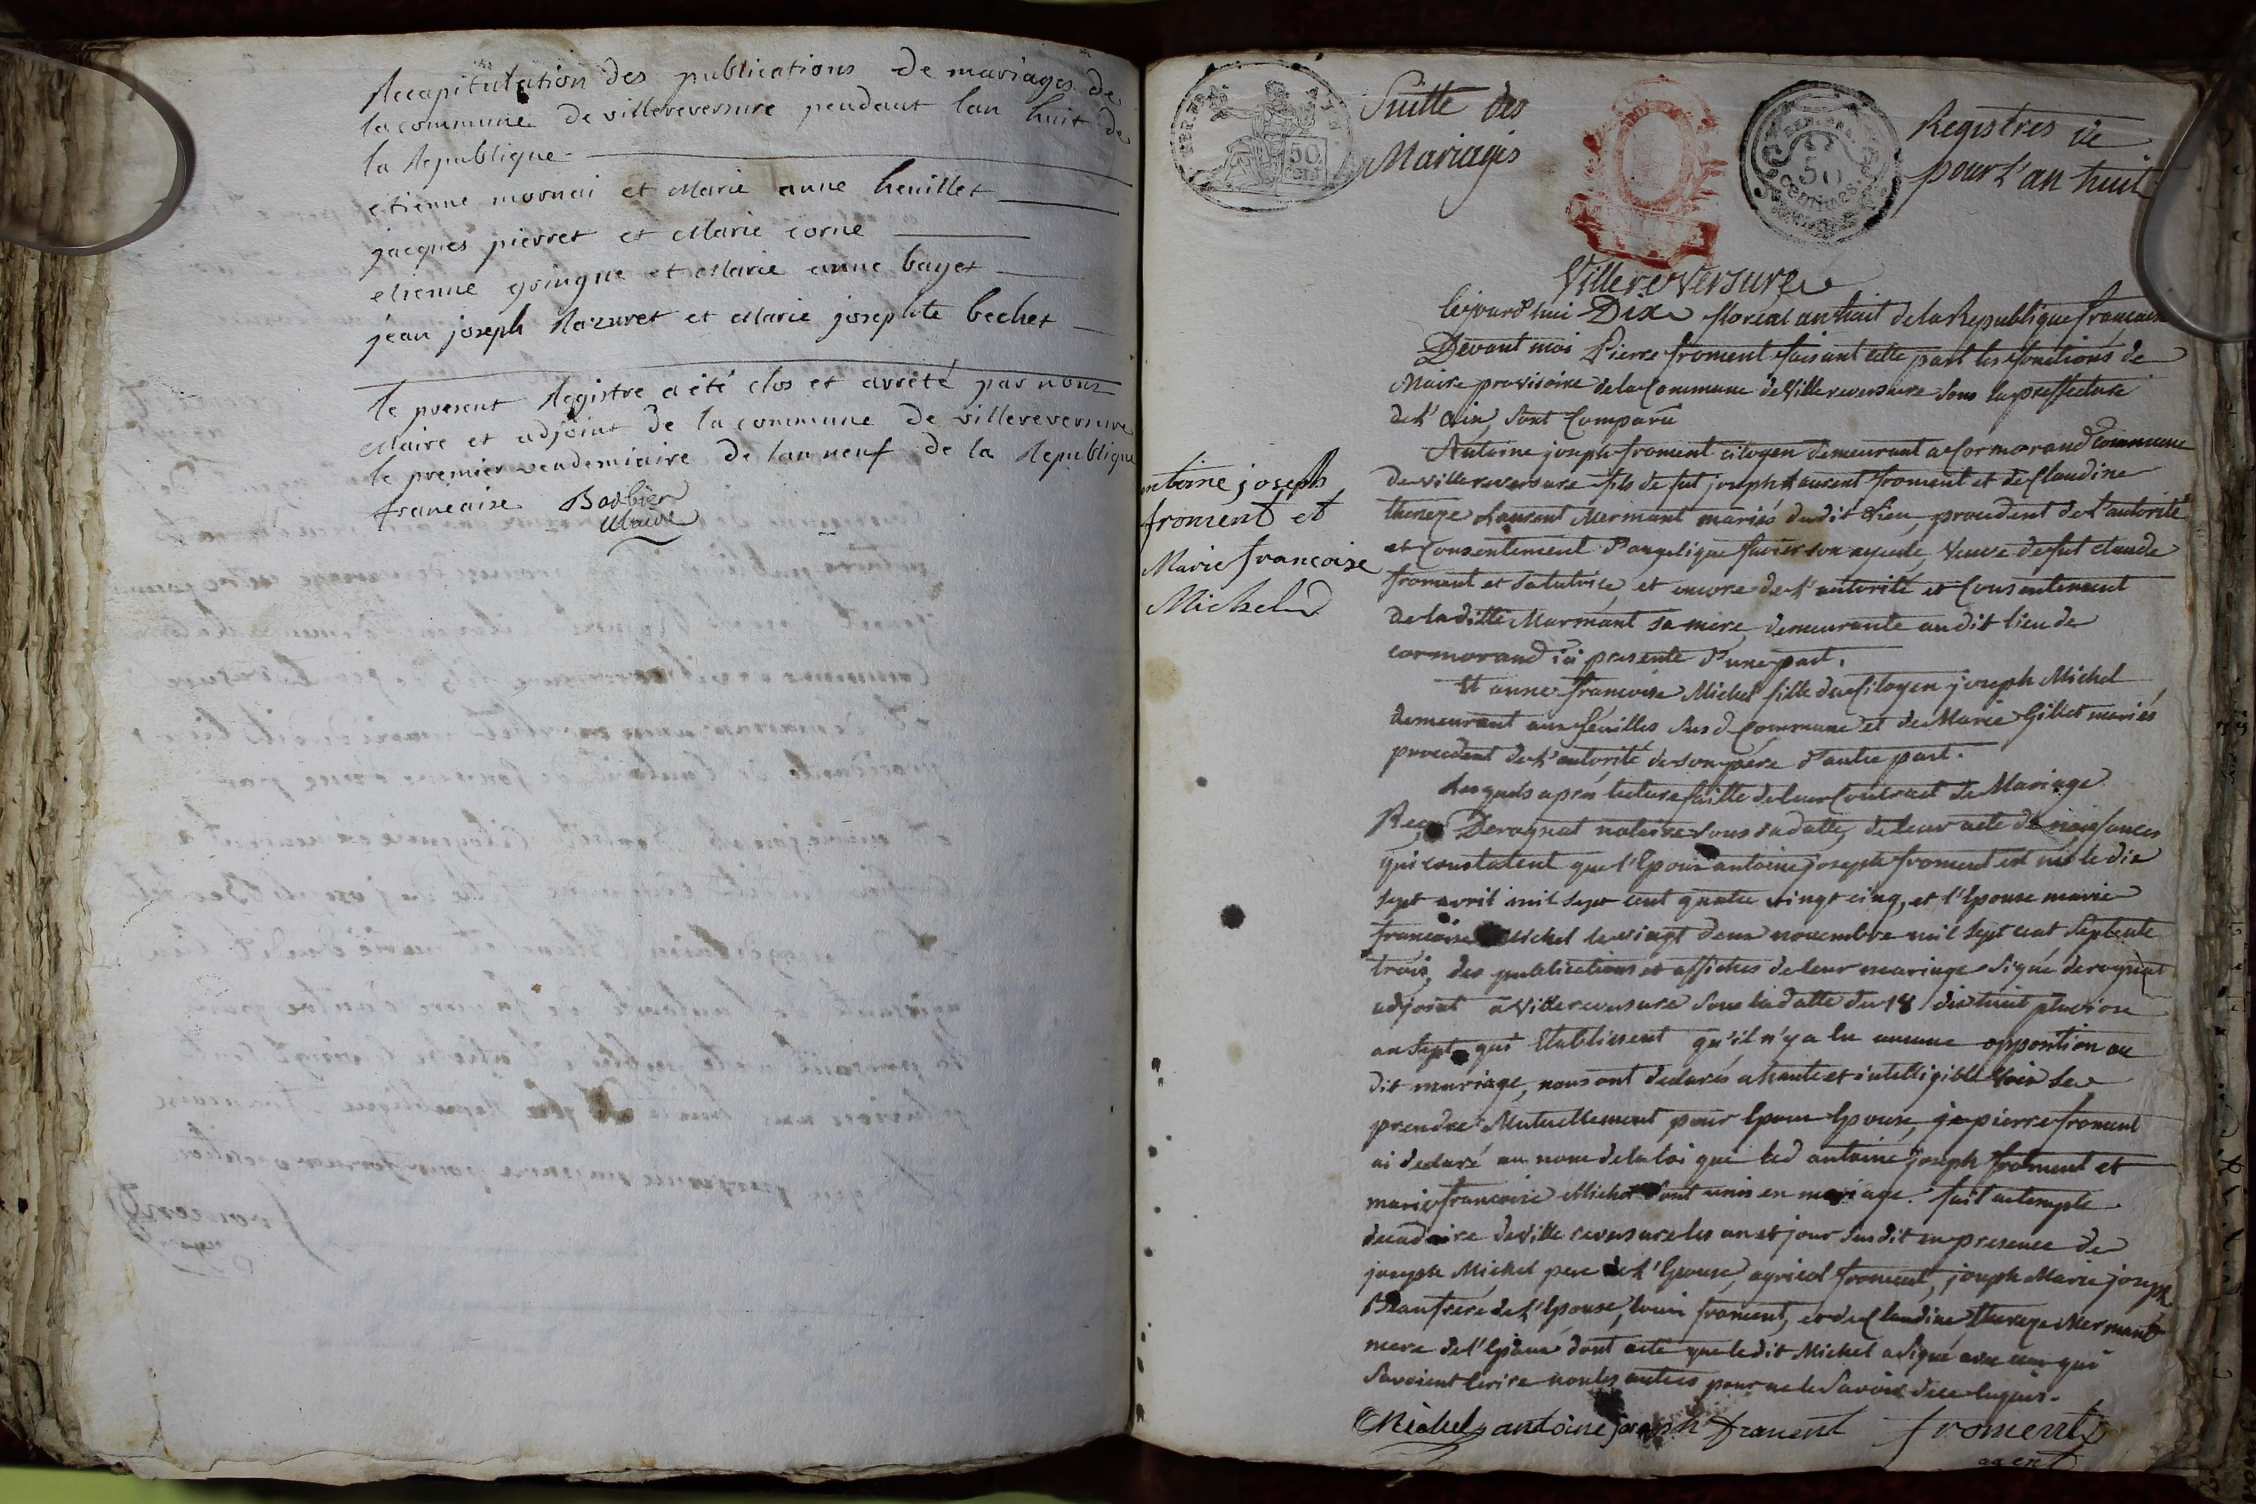 Recapitulation des publications de mariages de
la commune de villereversure pendant lan huit de
la Republique
etienne mornai et Marie anne heuillet
jacques pierret et Marie corne
etienne goingue et Marie anne bayet
jean joseph Nazaret et Marie josephte bechet
le present Registre a été clos et arrété par nous
Maire et adjoint de la commune de villereversure
le premier vendemiaire de lan neuf de la Republique
francaise Barbier
Maire
Suitte des
Mariages
50
cents
50
centimes
Registres de
pour l'an huit
Villereversure
Cejourd'hui Dix floreal an huit de la Republique francaise
Devant moi Pierre froment faisant cette part les fonctions de
Maire provisoire de la Commune de Villereversure sous la preffecture
de l'ain, sont Comparu
antoine joseph
froment et
Marie francoise
Michel
Antoine joseph froment citoyen demeurant a Cormorand Commune
de villereversure fils de fut joseph Laurent froment et de Claudine
therese Laurent Mermant mariés dudit Lieu, procedent de l'autorité
et Consentement d'angelique favier son ayeule, veuve de fut claude
froment et sa tutrice, et encore de l'autorité et Consentement
de laditte Marmant sa mere, demeurante audit lieu de
cormorand ici presente d'une part.
Et anne francoise Michel fille du Citoyen joseph Michel
demeurant aux feuilles susd Commune et de Marie Gillet mariés
procedent de l'autorité de son père d'autre part.
Lesquels aprés lecture faitte de leur Contract de Mariage
Reçu Derognat notaire sous sa datte, de leur acte de naissances
qui constatent que l'Epoux antoine joseph froment est né le dix
sept avril mil sept cent quatre vingt cinq, et l'Epouse marie
francoise Michel le vingt deux novembre mil sept cent septente
trois, des publications et affiches de leur mariage signé derognat
adjoint a Villereversure sous la datte du 18 dix huit pluviose
an sept qui Etablissent qu'il n'y a lu aucune opposition au
dit mariage, nous ont declarés a haute et intelligible Voix se
prendre Mutuellement pour Epoux Epouse, je pierre froment
ai declaré au nom de la loi que led antoine joseph froment et
marie francoise Michel sont unis en mariage. fait au temple
decadaire de Villereversure les an et jour susdit en presence de
joseph Michel pere de l'Epouse, agricol froment, joseph Marie joseph
Beaufrere de l'Epouse, louis froment, et de Claudine therese Mermant
mere de l'Epoux dont acte que ledit Michel a signé avec ceux qui
savoient Ecrire non les autres pour ne le savoir de ce Requis.
Michel antoine joseph froment froment
agent